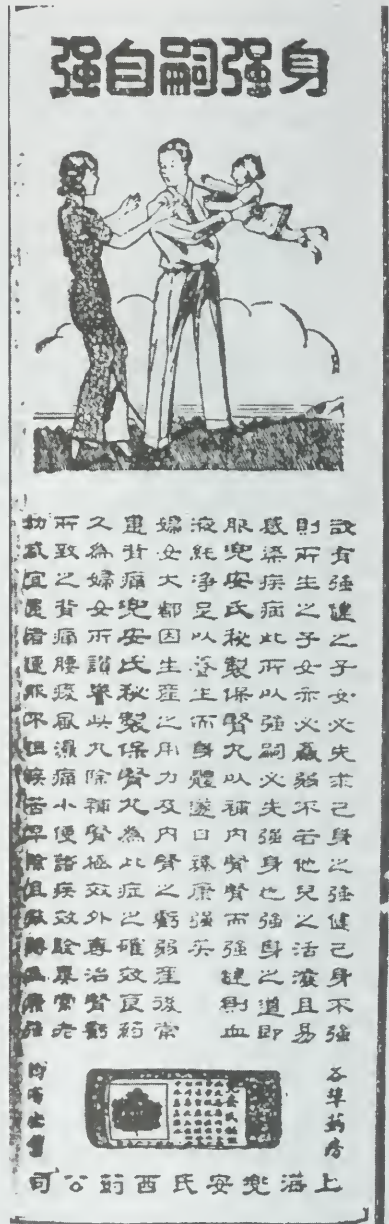 身强嗣强自
欲有强健之子女必先求己身之强健己身不强
則所生之子女亦必羸弱不若他兒之活潑且易
感染疾病此所以强嗣必先强身也强身之道即
服兜安氏秘製保腎丸以補內腎腎而强健則血
液純净足以養生而身體遂日臻康强矣
婦女大都因生產之用力及內腎之虧弱產後常
患背痛兜安氏秘製保腎丸為此症之確效良药
久為婦女所讚譽此丸除補腎極效外專治腎虧
所致之背痛腰痠風濕痛小便諸疾效驗異常老
幼咸宜患者速服不但疾苦早除且
各埠葯房
均有出售
上海兜安氏西葯公司